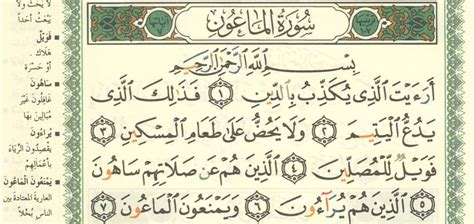 سُورَةُ المَاعُونِ
بِسْمِ اللَّهِ الرَّحْمَٰنِ الرَّحِيمِ
أَرَءَيْتَ الَّذِى يُكَذِّبُ بِالدِّينِ ١ فَذَٰلِكَ الَّذِى
يَدُعُّ الْيَتِيمَ ٢ وَلَا يَحُضُّ عَلَىٰ طَعَامِ الْمِسْكِينِ ٣
فَوَيْلٌ لِّلْمُصَلِّينَ ٤ الَّذِينَ هُمْ عَن صَلَاتِهِمْ سَاهُونَ
٥ الَّذِينَ هُمْ يُرَآءُونَ ٦ وَيَمْنَعُونَ الْمَاعُونَ ٧
لَا يَحُثُّ ولَا
يَبْعَثُ أحَداً
فَوَيْلٌ
هَلَاكٌ
أوْ حَسْرَةٌ
سَاهُونَ
غَافِلُونَ غَيْرُ
مُبَالِينَ بها
يُرَاءُونَ
يَقْصِدُونَ الرِّيَاءَ
بِأعْمَالِهِم
يَمْنَعُونَ الْمَاعُونَ
العارية المعتادة بين
الناس بُخْلاً